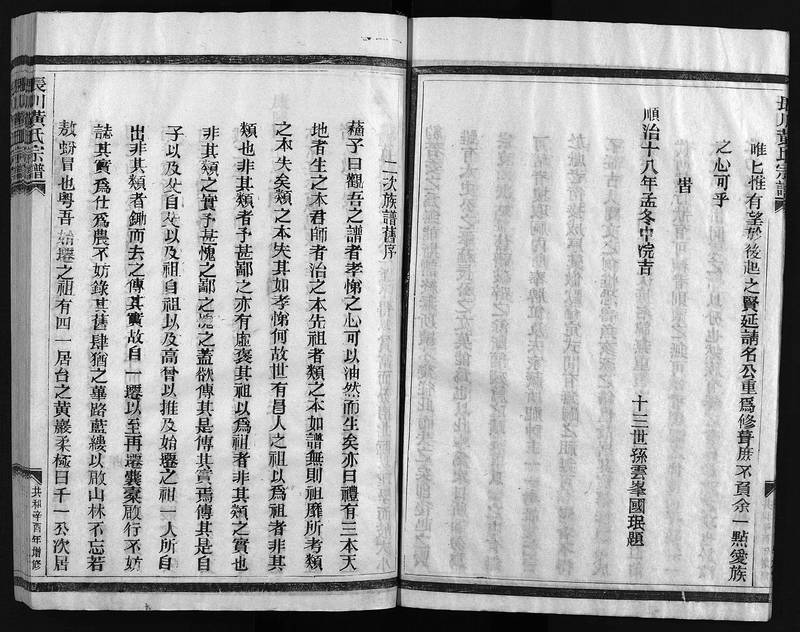 唯乜惟有望於後起之賢延請名公重為修葺庶不負余一點愛族
之心可乎
旹
順治十八年孟冬中浣吉
十三世孫雲峯國珉題
長川黃氏宗譜
二次族譜舊序
蘓子曰觀吾之譜者孝悌之心可以油然而生矣亦曰禮有三本天
地者生之本君師者治之本先祖者類之本如譜無則祖靡所考類
之本失矣類之本失其如孝悌何故世有冒人之祖以為祖者非其
類也非其類者予甚鄙之亦有虛褒其祖以為祖者非其類之實也
非其類之實予甚愧之鄙之愧之蓋欲傳其是傳其實焉傳其是自
子以及父自父以及祖自祖以及高曾以推及始遷之祖一人所自
出非其類者鋤而去之傳其實故自一遷以至再遷囊橐啟行不妨
誌其實為仕為農不妨錄其舊肆猶之蓽路藍縷以啟山林不忘若
敖蚡冒也粵吾始遷之祖有四一居台之黃巖柔極曰千一公次居
長川黃氏宗譜
共和辛酉年增修